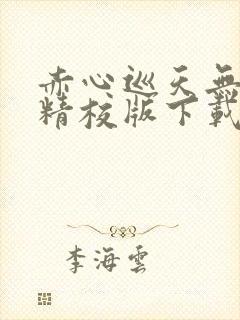 赤心巡天無
精校版下載
李海雲